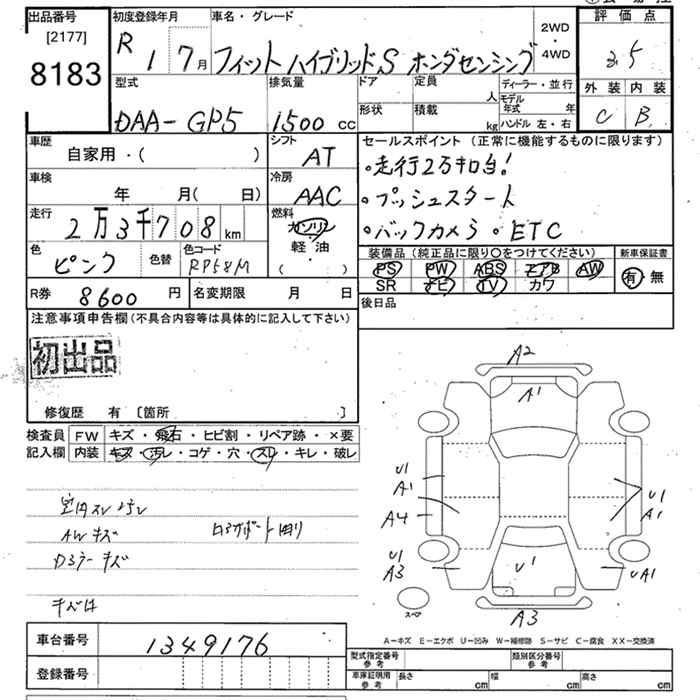 出品番号 [2177] 8183
初度登録年月 R 1 7月
車名・グレード フィット ハイブリッドS ホンダセンシング
2WD・4WD
評価点 3.5
外装 内装
C B
型式 DAA-GP5
排気量 1500 cc
ドア 形状
定員 人
積載 kg
ディーラー・並行
モデル年式 年
ハンドル 左・右
車歴 自家用・( )
シフト AT
車検 年 月( 日)
冷房 AAC
走行 2万3千708 km
燃料 ガソリン 軽油 ( )
色 ピンク 色替
色コード RP58M
R券 8600 円
名変期限 月 日
セールスポイント(正常に機能するものに限ります)
・走行2万キロ台!
・プッシュスタート
・バックカメラ ・ETC
装備品(純正品に限り○をつけてください) 新車保証書
PS PW ABS エアB AW 有・無
SR ナビ TV カワ
後日品
注意事項申告欄(不具合内容等は具体的に記入して下さい)
初出品
修復歴 有 [箇所 ]
検査員記入欄 FW キズ・飛石・ヒビ割・リペア跡・×要
内装 キズ・汚レ・コゲ・穴・スレ・キレ・破レ
室内スレ 汚レ
AWキズ
Dミラーキズ
A2
A1
U1
A1
A4
U1
A3
U1
A1
U1
UA1
A3
スペア
A-キズ E-エクボ U-凹み W-補修跡 S-サビ C-腐食 XX-交換済
車台番号 1349176
登録番号
型式指定番号 参考 類別区分番号 参考
車庫証明用 参考 長さ cm 幅 cm 高さ cm